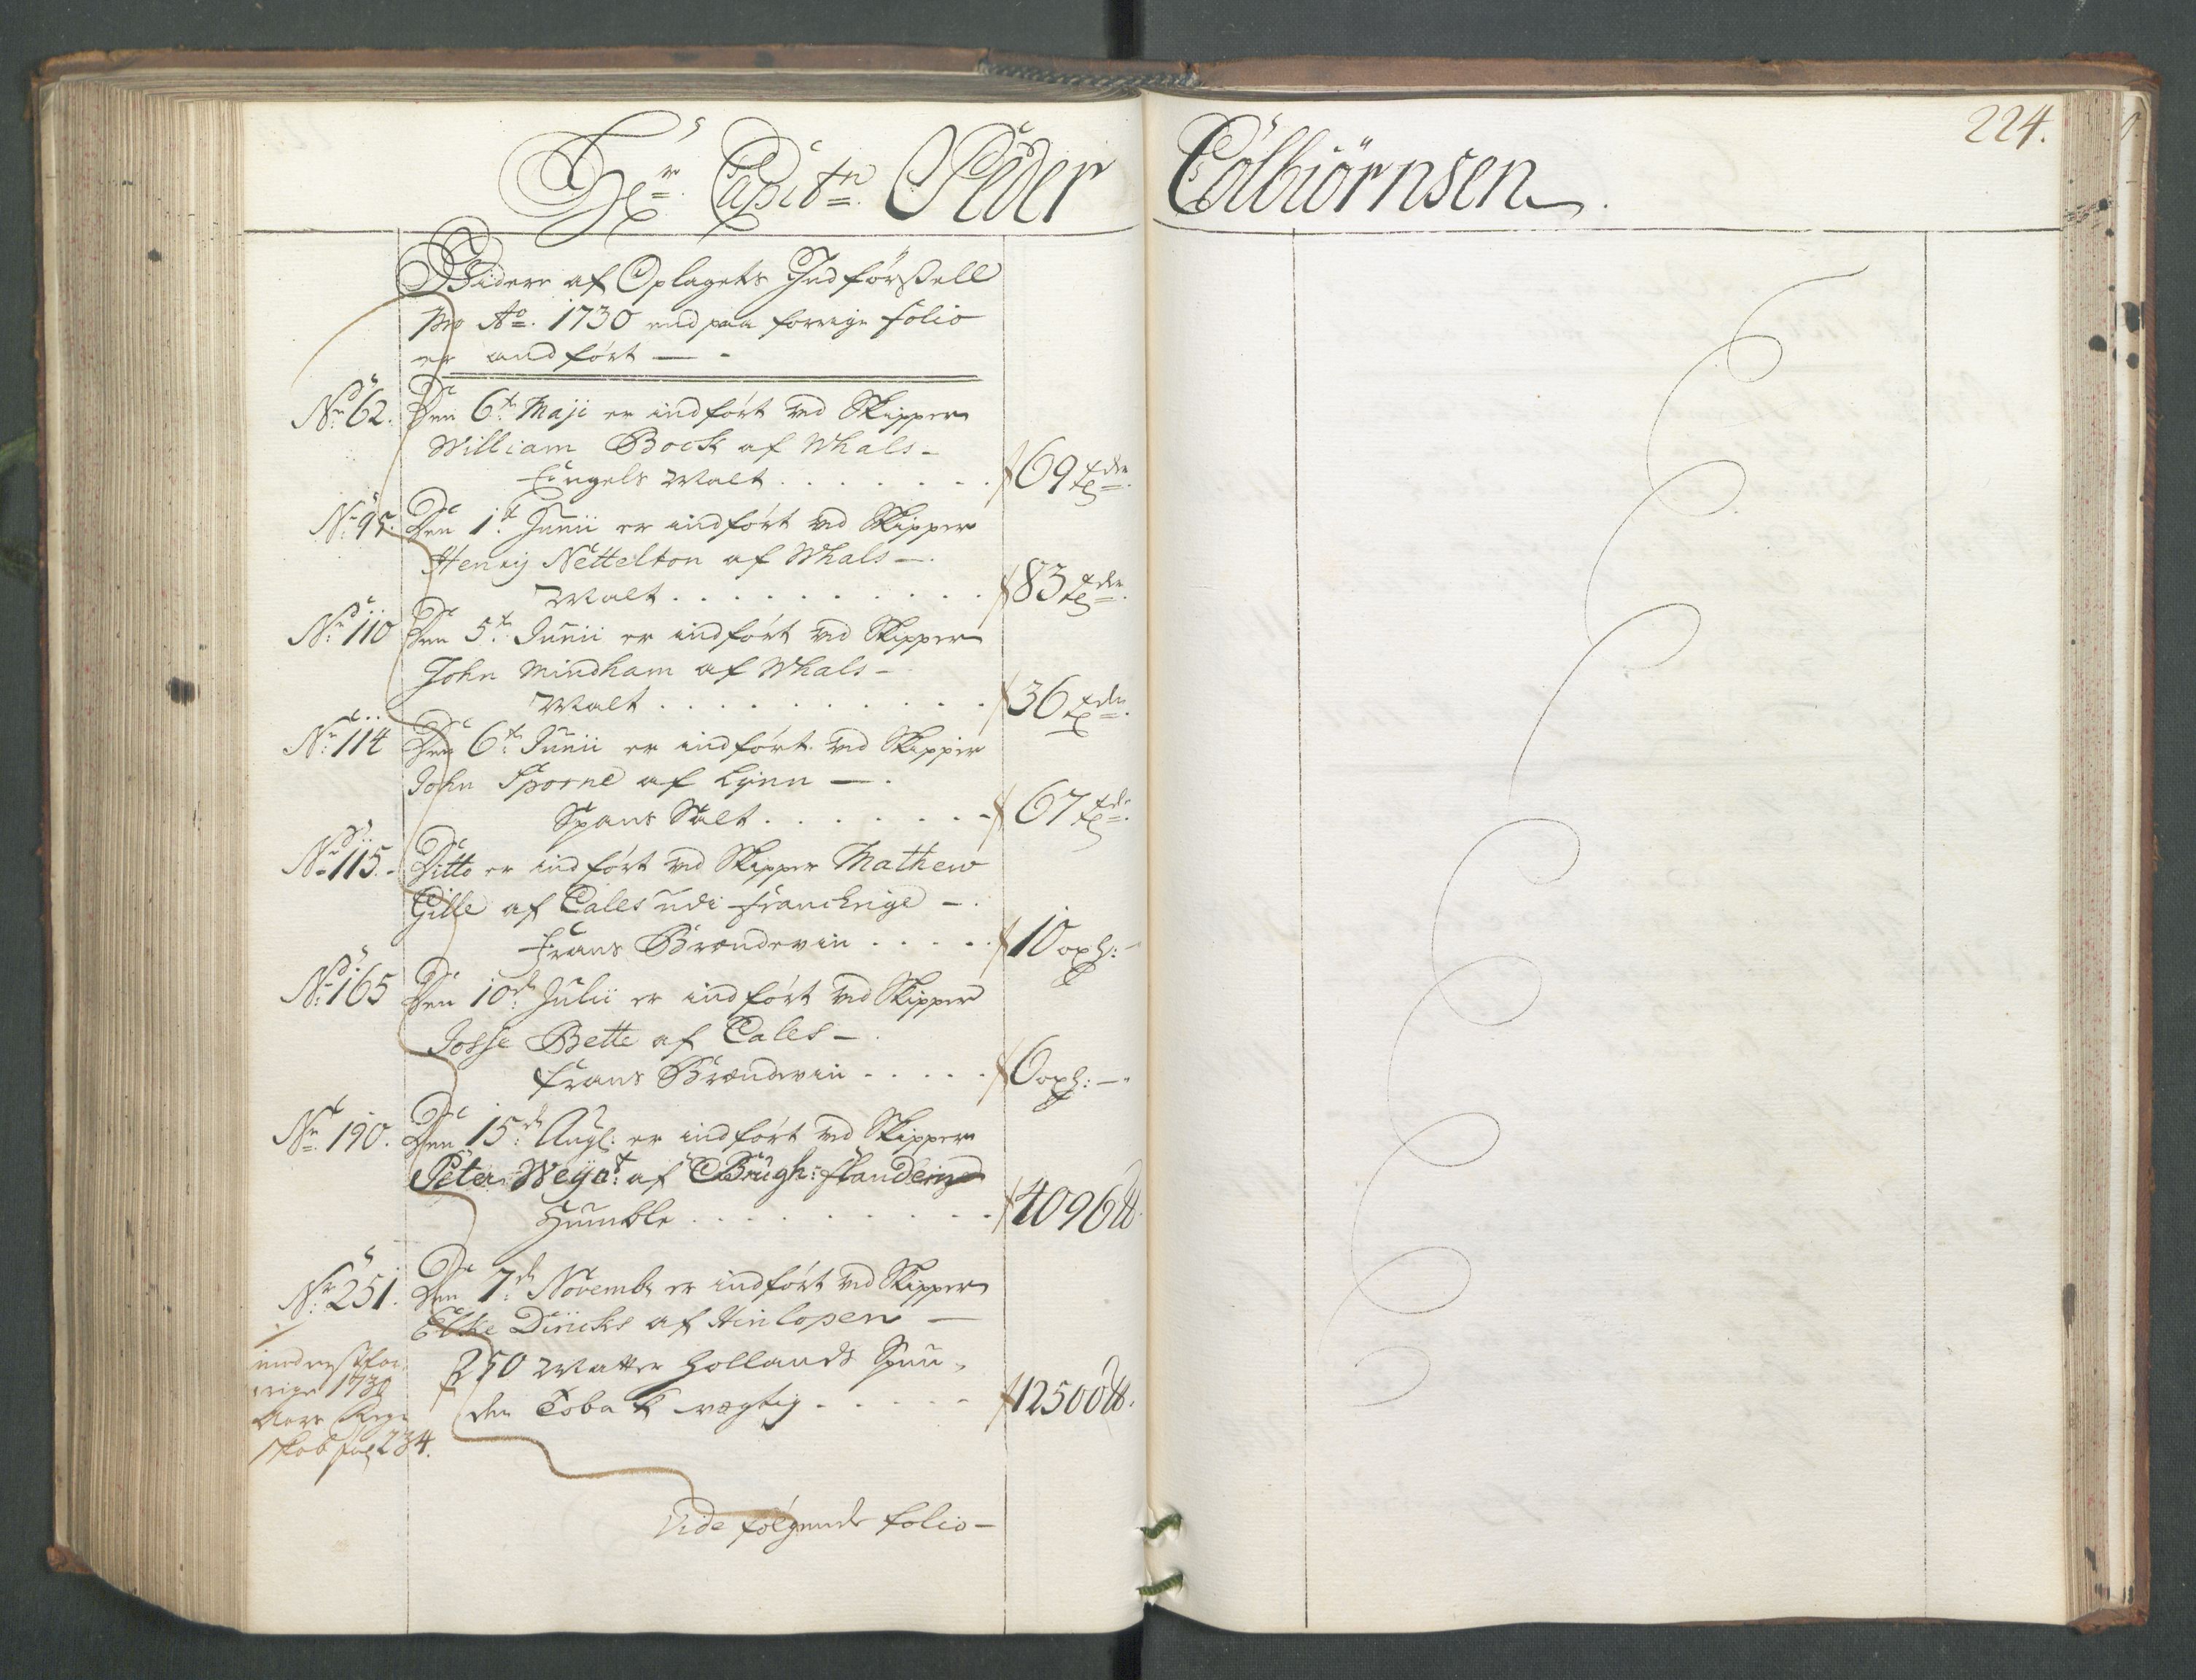 Hr. Capitn. Peder Colbiörnsen.
224.
Videre af Oplagets Indförßell
pro Ao. 1730 end paa forrige folio
er andfört —
No. 62. Den 6te Maji er indfört med Skipper
William Bock af Whals —
Engels Malt . . . . . . . 69 tdr.
No. 95. Den 1te Junii er indfört med Skipper
Henrij Nettelton af Whals —
Malt . . . . . . . . . . 83 tdr.
No. 110 Den 5te Junii er indfört med Skipper
John Mindham af Whals —
Malt . . . . . . . . . . 36 tdr.
No. 114 Den 6te Junii er indfört med Skipper
John Sporne af Lynn —
Spans Salt . . . . . . . 67 tdr.
No. 115. Ditto er indfört med Skipper Mathew
Gille af Cales udi Franckrige —
Frans Brændevin . . . . . 10 oxh: —
No. 165 Den 10de Julii er indfört med Skipper
Josse Bette af Cales —
Frans Brændevin . . . . . 6 oxh: —
No. 190. Den 15de Augt: er indfört med Skipper
Peter Weÿn: af Brügh: flandern
Humble . . . . . . . . . . 4096 lb.
No. 251. Den 7de Novemb: er indfört med Skipper
Elke Dircks af Hinlopen —
250 Matter Hollands Spun-
den Toback vægtig . . . . . 12500 lb.
1730
skab fol 234.
Vide følgende folio —